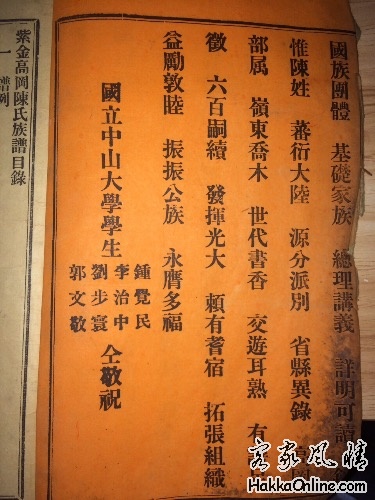 國族團體 基礎家族 總理講義 詳明可讀
惟陳姓 蕃衍大陸 源分派別 省縣異錄
部属 嶺東喬木 世代書香 交遊耳熟 有
徵 六百嗣續 發揮光大 頼有耆宿 拓張組織
益勵敦睦 振振公族 永膺多福
國立中山大學學生
鍾覺民
李治中
劉步寰
郭文敬
仝敬祝
紫金高岡陳氏族譜目錄
一 譜例
客家風情
HakkaOnline.com